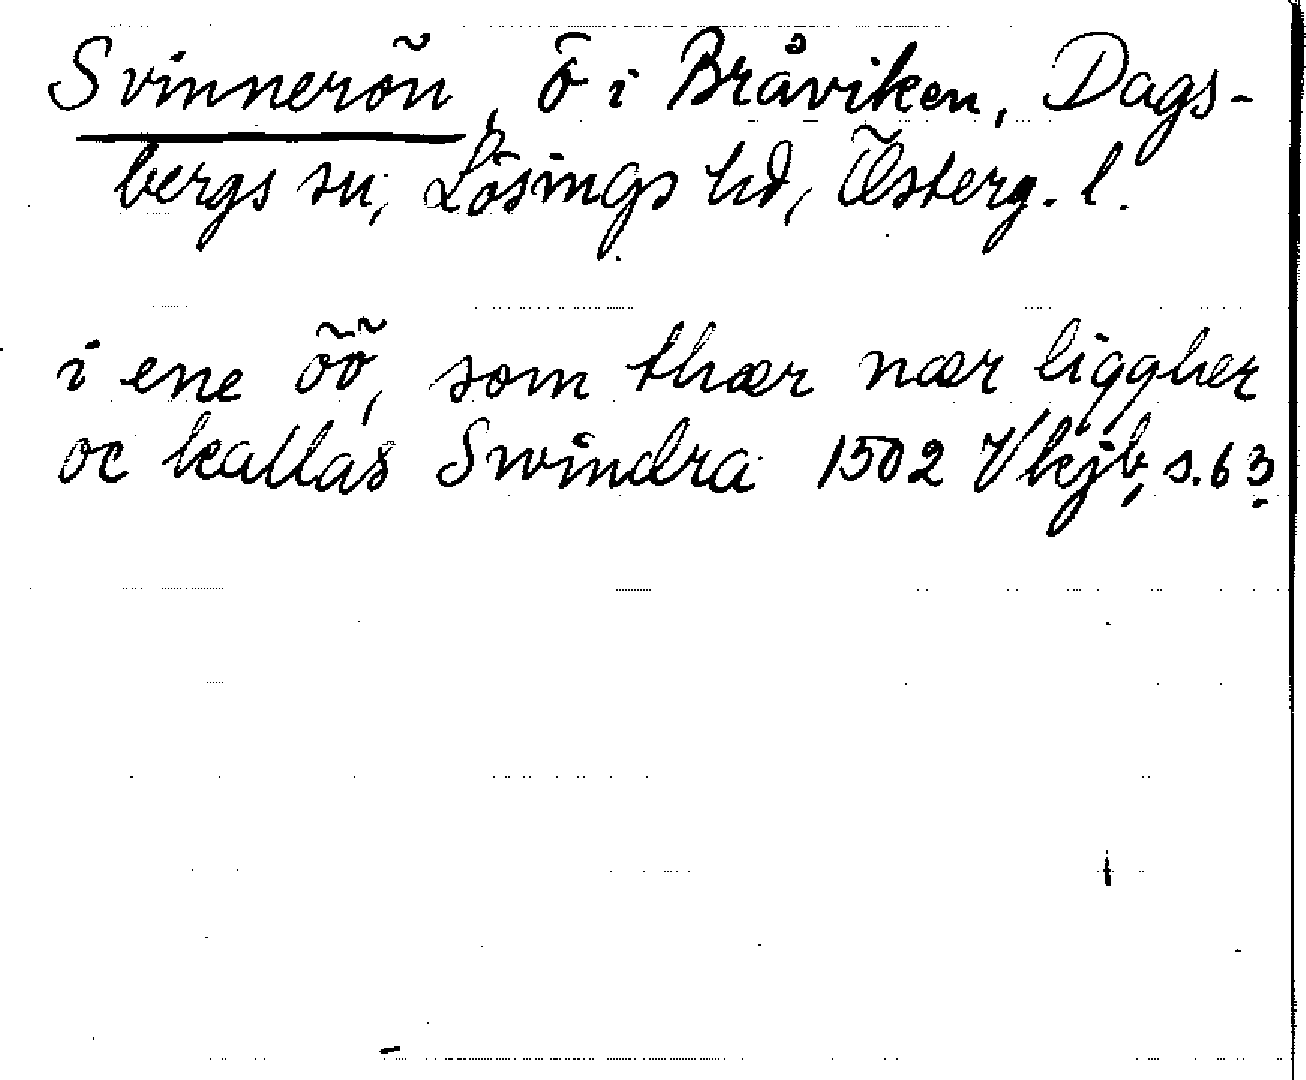 Svinnerön, ö i Bråviken, Dags-
bergs sn, Lösings hd, Österg. l.
i ene öö, som thær nær liggher
oc kallas Swindra 1502 Vkjb, s. 63